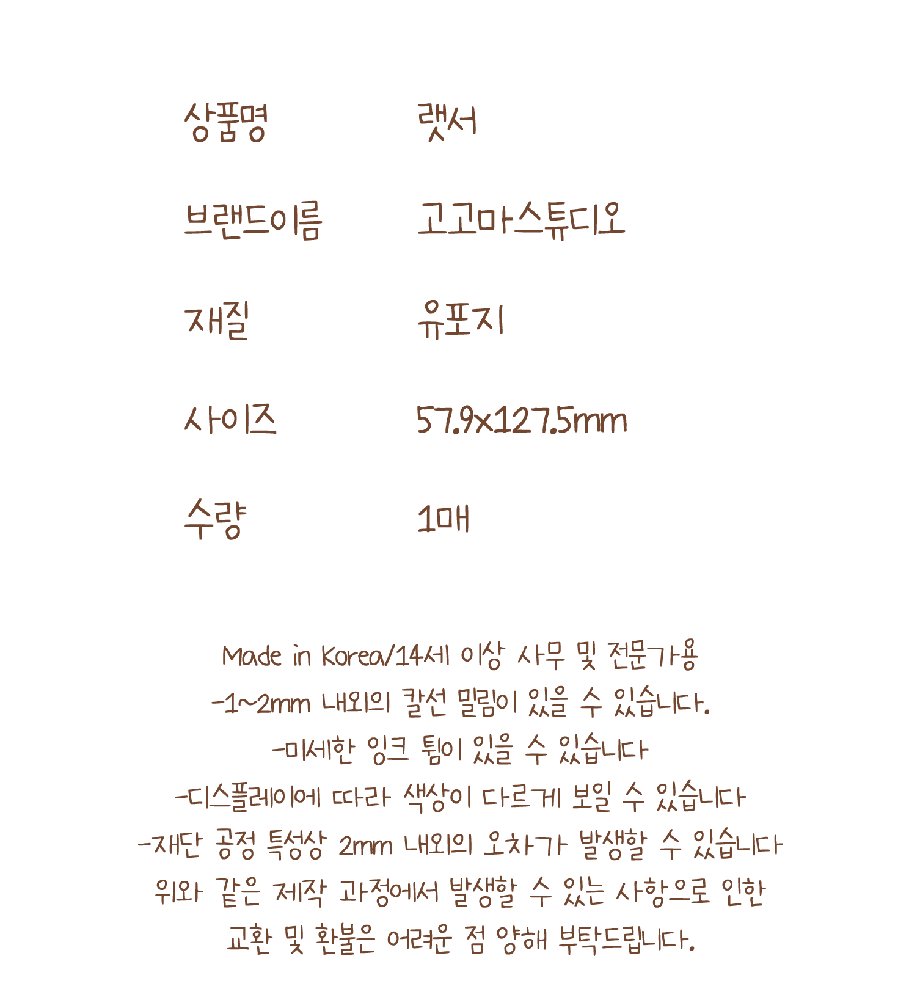 상품명 랫서
브랜드이름 고고마스튜디오
재질 유포지
사이즈 57.9x127.5mm
수량 1매
Made in Korea/14세 이상 사무 및 전문가용
-1~2mm 내외의 칼선 밀림이 있을 수 있습니다.
-미세한 잉크 튐이 있을 수 있습니다
-디스플레이에 따라 색상이 다르게 보일 수 있습니다
-재단 공정 특성상 2mm 내외의 오차가 발생할 수 있습니다
위와 같은 제작 과정에서 발생할 수 있는 사항으로 인한
교환 및 환불은 어려운 점 양해 부탁드립니다.